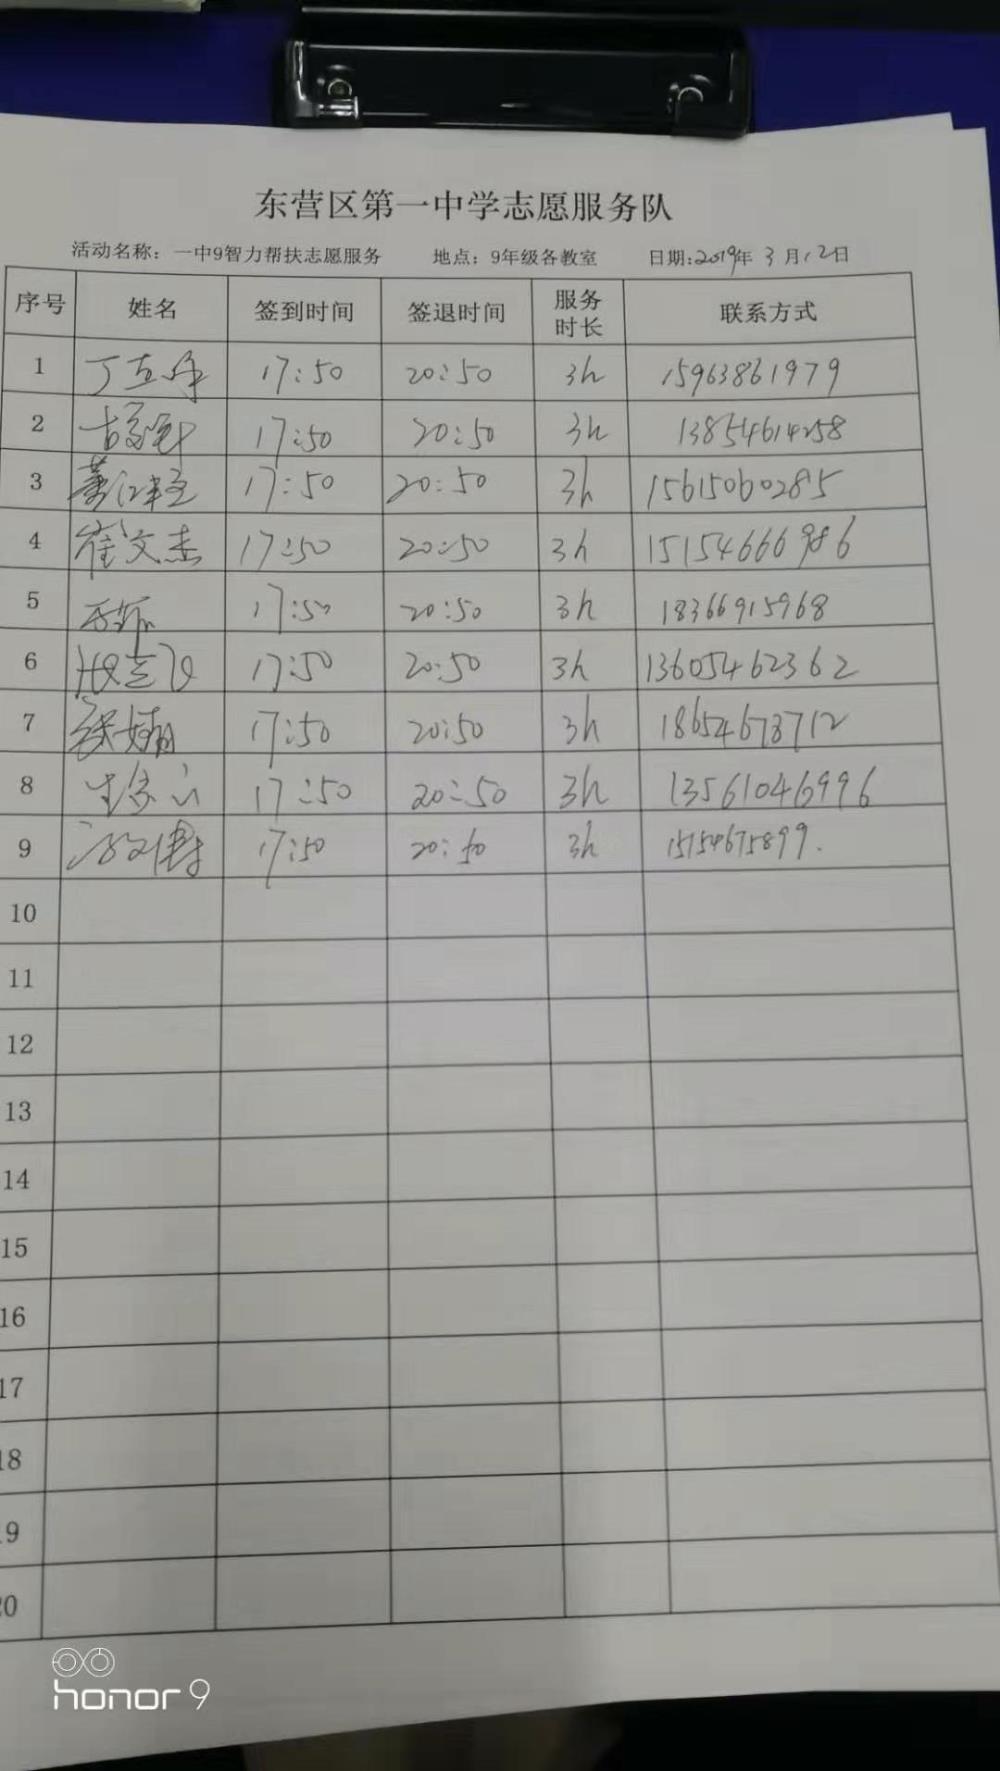 东营区第一中学志愿服务队
活动名称：一中9智力帮扶志愿服务 地点：9年级各教室 日期:2019年3月12日
序号 姓名 签到时间 签退时间 服务时长 联系方式
1 17:50 20:50 3h 15963861979
2 17:50 20:50 3h 13854614258
3 17:50 20:50 3h 15615060285
4 崔文杰 17:50 20:50 3h 15154666986
5 17:50 20:50 3h 18366915968
6 17:50 20:50 3h 13605462362
7 张婧 17:50 20:50 3h 18654673712
8 17:50 20:50 3h 13561046996
9 17:50 20:50 3h 15154675899.
10
11
12
13
14
15
16
17
18
19
20
honor 9